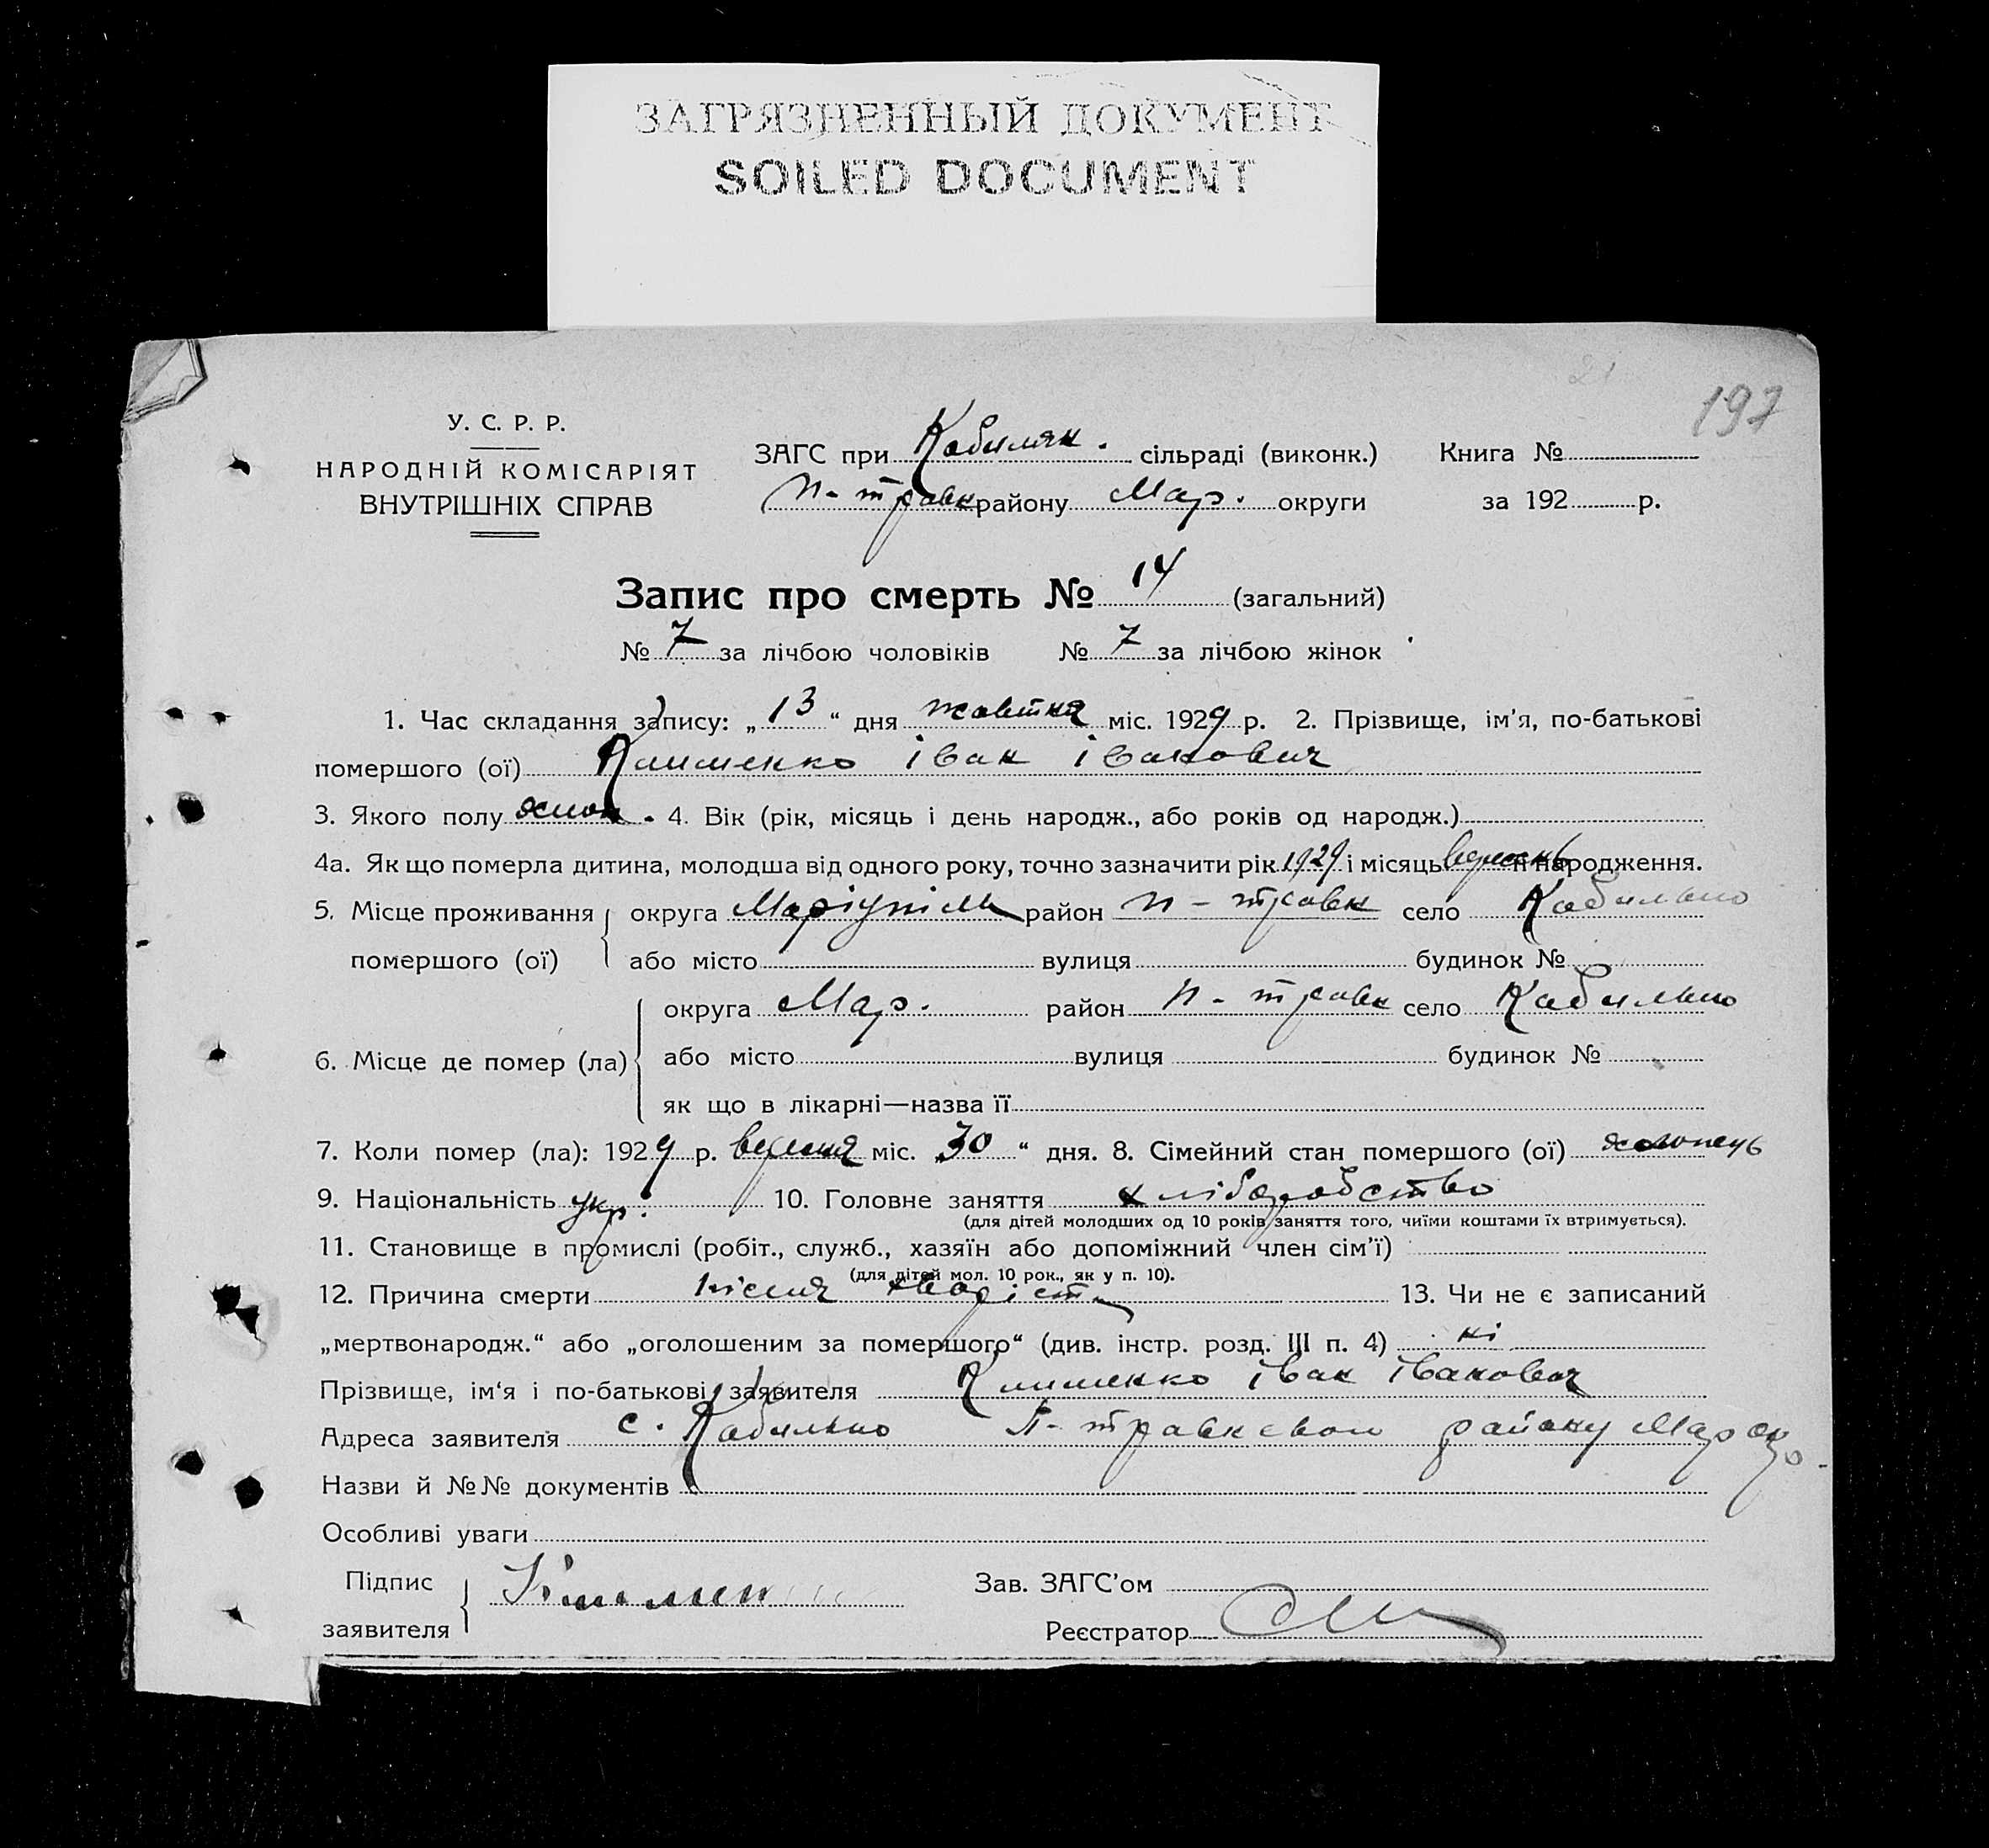 ЗАГРЯЗНЕННЫЙ ДОКУМЕНТ
SOILED DOCUMENT
21
197
У. С. Р. Р.
НАРОДНІЙ КОМІСАРІЯТ
ВНУТРІШНІХ СПРАВ
ЗАГС при Кобиляк. сільраді (виконк.)
П-травк району Мар. округи
Книга №
за 192 р.
Запис про смерть № 14 (загальний)
№ 7 за лічбою чоловіків № 7 за лічбою жінок
1. Час складання запису: „13“ дня жовтня міс. 1929 р. 2. Прізвище, ім'я, по-батькові
помершого (ої) Клименко іван іванович
3. Якого полу 4. Вік (рік, місяць і день народж., або років од народж.)
4а. Як що померла дитина, молодша від одного року, точно зазначити рік 1929 і місяць вересень її народження.
5. Місце проживання округа Маріупіль район п-травк село
помершого (ої) або місто вулиця будинок №
округа Мар. район п-травк село
6. Місце де помер (ла) або місто вулиця будинок №
як що в лікарні—назва її
7. Коли помер (ла): 1929 р. вересня міс. „30“ дня. 8. Сімейний стан помершого (ої) холопець
9. Національність укр. 10. Головне заняття хліборобство
(для дітей молодших од 10 років заняття того, чиїми коштами їх втримується).
11. Становище в промислі (робіт., служб., хазяїн або допоміжний член сім'ї)
(для дітей мол. 10 рок., як у п. 10).
12. Причина смерти 13. Чи не є записаний
„мертвонародж.“ або „оголошеним за помершого“ (див. інстр. розд. III п. 4) ні
Прізвище, ім'я і по-батькові заявителя Клименко іван іванович
Адреса заявителя с. П-травневого району Мар окр.
Назви й №№ документів
Особливі уваги
Підпис
заявителя Климен
Зав. ЗАГС'ом
Реєстратор